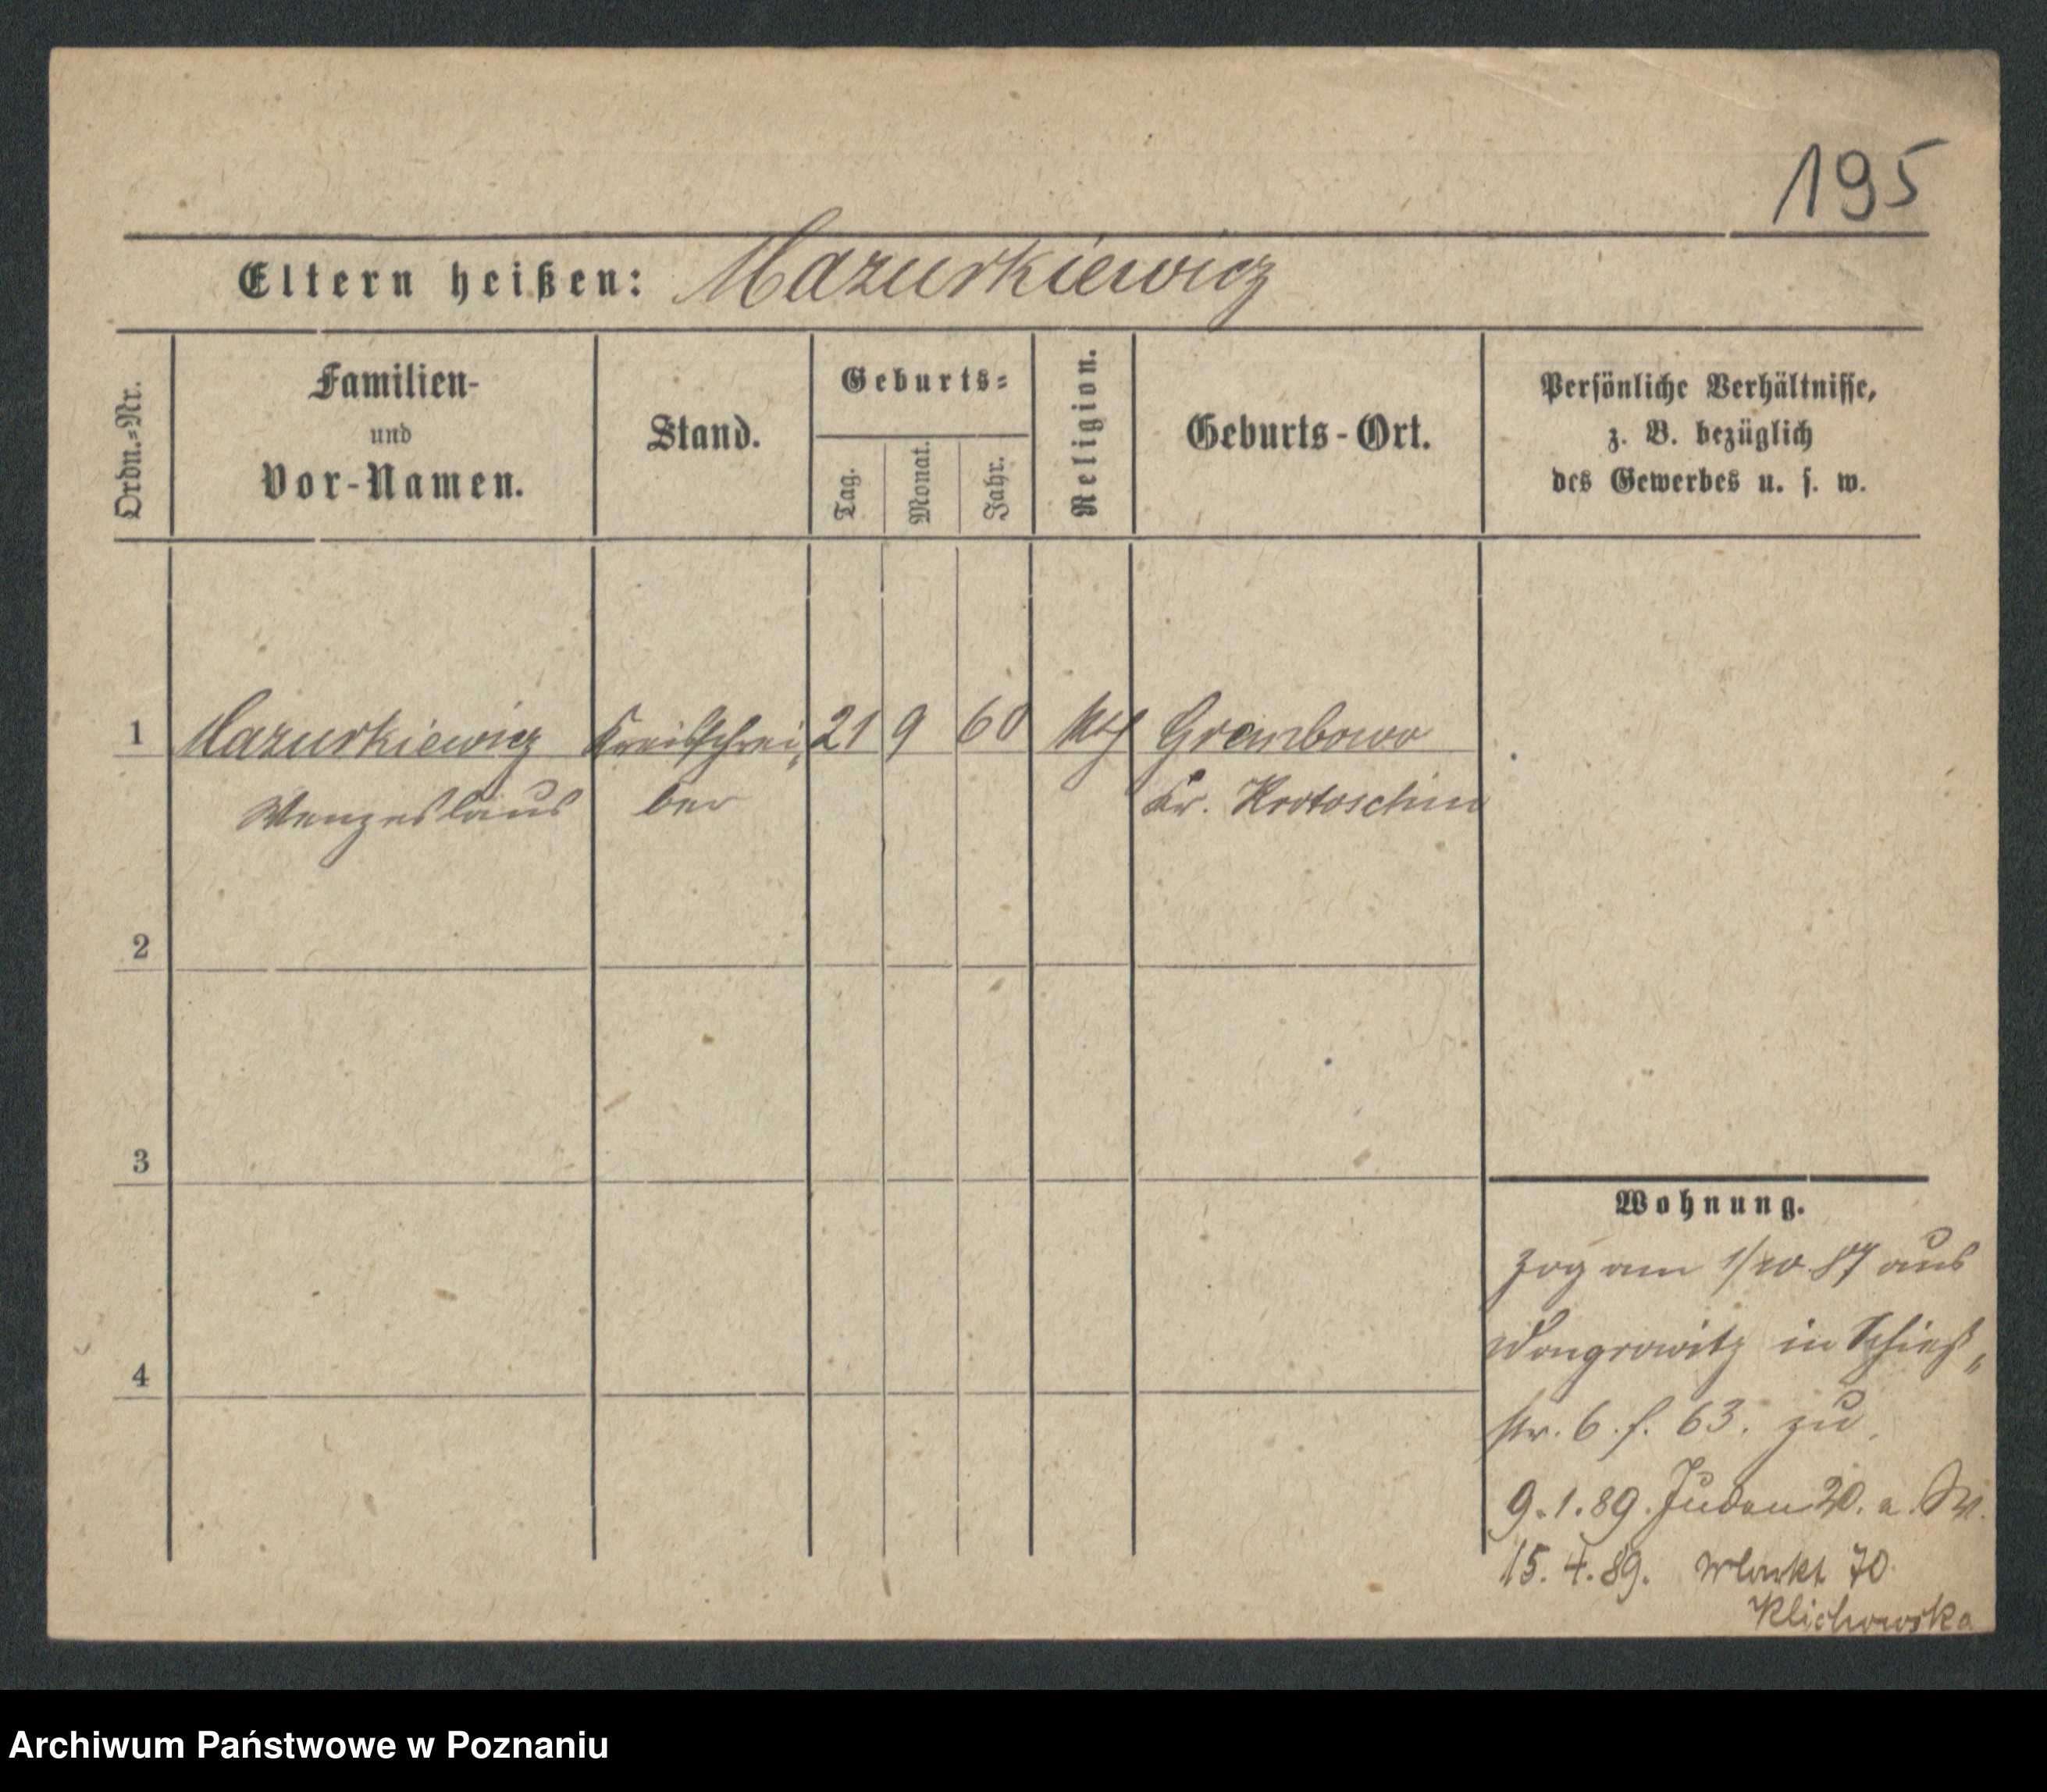 195
Eltern heißen: Mazurkiewicz
Ordn.-Nr.
Familien-
und
Vor-Namen.
Stand.
Geburts-
Tag.
Monat.
Jahr.
Religion.
Geburts-Ort.
Persönliche Verhältnisse,
z. B. bezüglich
des Gewerbes u. s. w.
1 Mazurkiewicz Kreisschrei„ 21 9 60 kth Grembowo
Wenzeslaus ber Kr. Krotoschin
2
3
4
Wohnung.
zog am 1/10 87 aus
Wongrowitz in Schieß„
str. 6. f. 63. zu.
9.1.89. Juden 20. a.
15.4.89. 70
Klichowska
Archiwum Państwowe w Poznaniu